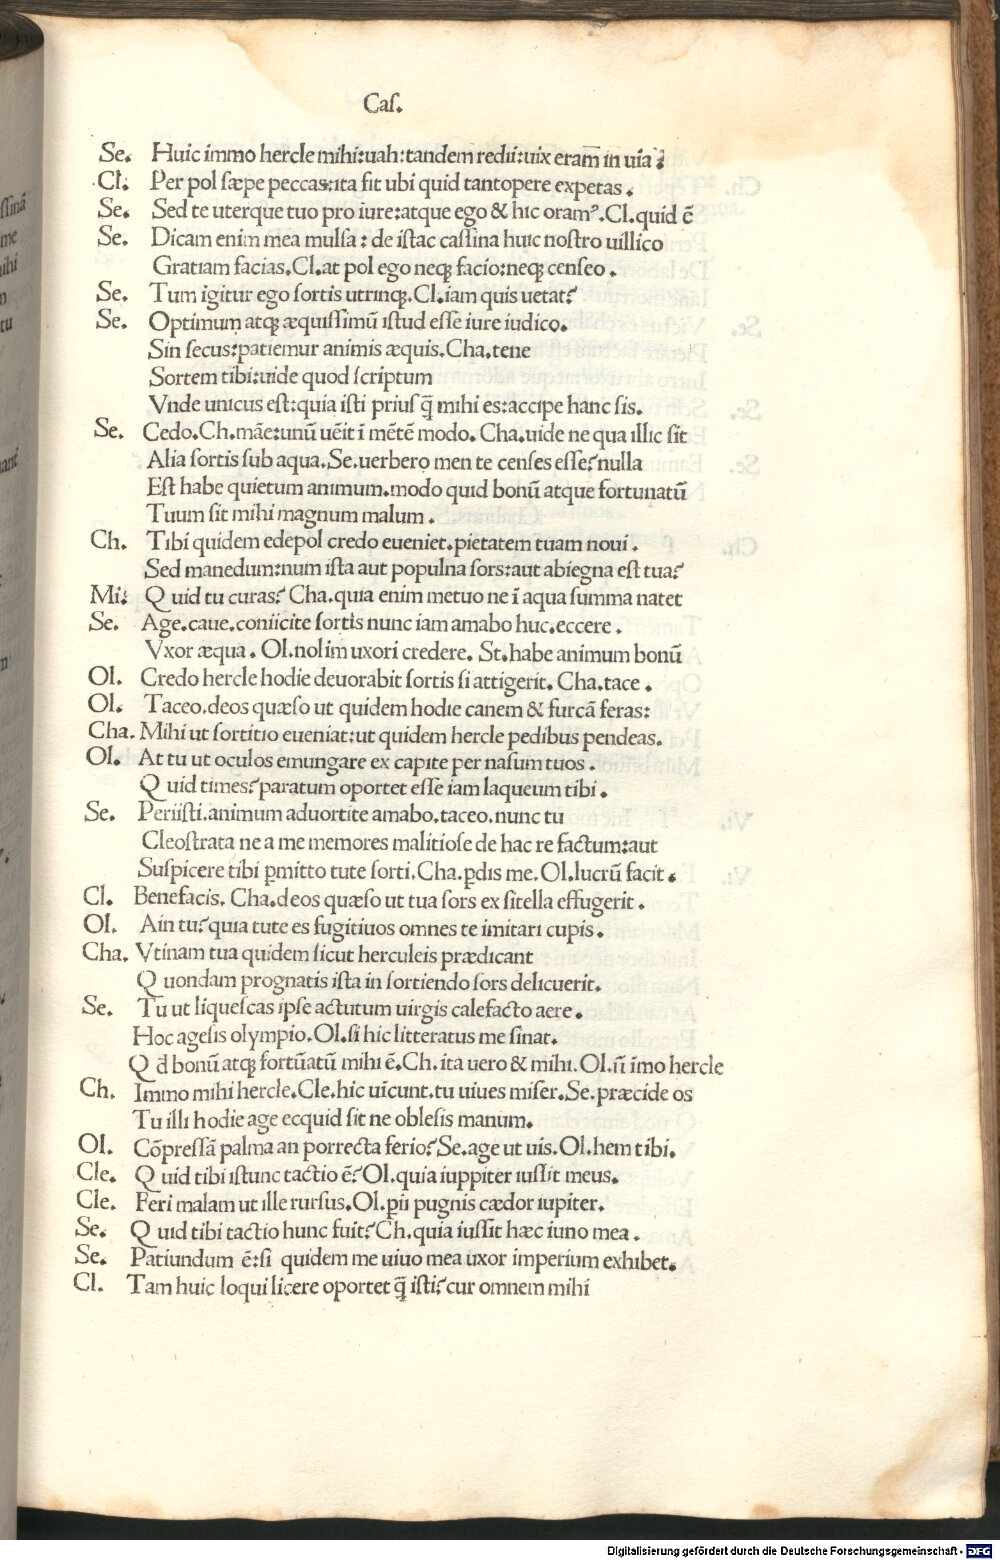 Caſ.
Se. Huic immo hercle mihi:uah:tandem redii:uix eram̅ in uia ?
Cl. Per pol ſæpe peccas:ita fit ubi quid tantopere expetas .
Se. Sed te uterque tuo pro iure:atque ego & hic oramꝰ.Cl.quid ē
Se. Dicam enim mea mulſa : de iſtac caſſina huic noſtro uillico
Gratiam facias.Cl.at pol ego neqꝫ facio:neqꝫ cenſeo .
Se. Tum igitur ego ſortis utrinqꝫ.Cl.iam quis uetat?
Se. Optimum atqꝫ æquiſſimū iſtud eſſe iure iudico.
Sin ſecus:patiemur animis æquis.Cha.tene
Sortem tibi:uide quod ſcriptum
Vnde unicus eſt:quia iſti priuſ q̄ mihi es:accipe hanc ſis.
Se. Cedo.Ch.māe:unū uēit ī mētē modo. Cha.uide ne qua illic ſit
Alia ſortis ſub aqua.Se.uerbero men te cenſes eſſe?nulla
Eſt habe quietum animum.modo quid bonū atque fortunatū
Tuum ſit mihi magnum malum .
Ch. Tibi quidem edepol credo eueniet.pietatem tuam noui .
Sed manedum:num iſta aut populna ſors:aut abiegna eſt tua?
Mi: Quid tu curas? Cha.quia enim metuo ne ī aqua ſumma natet
Se. Age.caue.coniicite ſortis nunc iam amabo huc.eccere .
Vxor æqua . Ol.nolim uxori credere. St.habe animum bonū
Ol. Credo hercle hodie deuorabit ſortis ſi attigerit. Cha.tace .
Ol. Taceo.deos quæſo ut quidem hodie canem & furcā feras:
Cha. Mihi ut ſortitio eueniat:ut quidem hercle pedibus pendeas.
Ol. At tu ut oculos emungare ex capite per naſum tuos .
Quid times?paratum oportet eſſe iam laqueum tibi .
Se. Periiſti.animum aduortite amabo.taceo.nunc tu
Cleoſtrata ne a me memores malitioſe de hac re factum:aut
Suſpicere tibi ꝑmitto tute ſorti.Cha.ꝑdis me.Ol.lucrū facit .
Cl. Benefacis. Cha.deos quæſo ut tua ſors ex ſitella effugerit .
Ol. Ain tu?quia tute es fugitiuos omnes te imitari cupis .
Cha. Vtinam tua quidem ſicut herculeis prædicant
Quondam prognatis iſta in ſortiendo ſors delicuerit.
Se. Tu ut liqueſcas ipſe actutum uirgis calefacto aere .
Hoc ageſis olympio.Ol.ſi hic litteratus me ſinat.
Qd bonū atqꝫ fortūatū mihi ē.Ch.ita uero & mihi.Ol.n̄ īmo hercle
Ch. Immo mihi hercle.Cle.hic uīcunt.tu uiues miſer.Se.præcide os
Tu illi hodie age ecquid ſit ne obleſis manum.
Ol. Cōpreſſā palma an porrecta ferio?Se.age ut uis.Ol.hem tibi.
Cle. Quid tibi iſtunc tactio ē?Ol.quia iuppiter iuſſit meus.
Cle. Feri malam ut ille rurſus.Ol.pii pugnis cædor iupiter.
Se. Quid tibi tactio hunc fuit?Ch.quia iuſſit hæc iuno mea .
Se. Patiundum ē:ſi quidem me uiuo mea uxor imperium exhibet.
Cl. Tam huic loqui licere oportet q̄ iſti?cur omnem mihi
Digitalisierung gefördert durch die Deutsche Forschungsgemeinschaft - DFG